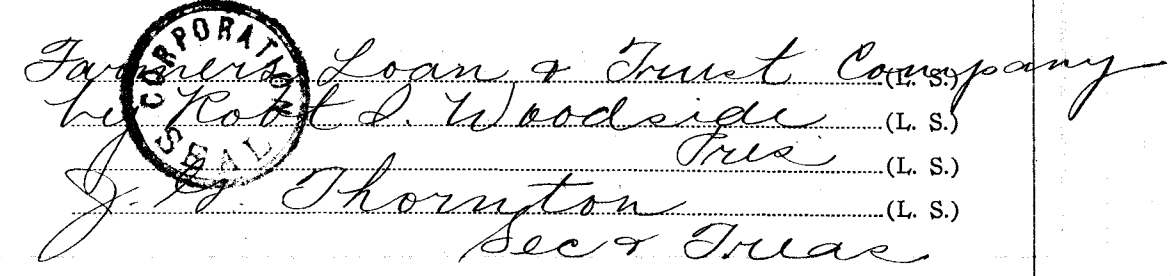 CORPORATION SEAL
Farmers Loan & Trust Company (L. S.)
by Robt I. Woodside (L. S.)
Pres (L. S.)
J. G. Thornton (L. S.)
Sec & Treas